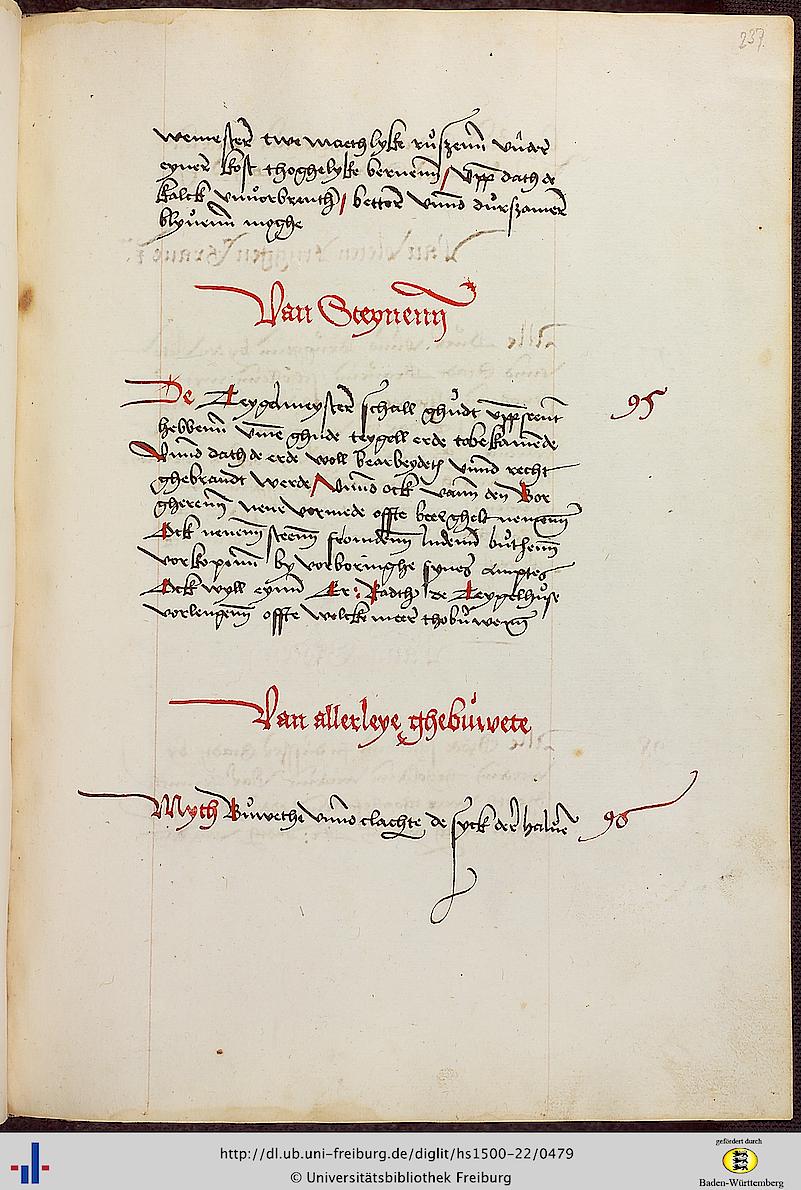 237.
wemester twe maeth lyke
eyner kost thoghelyke bernenn / Upp dath de
kalck / better unnd durszamer
blyuenn moghe
Van Steynenn
De Teygelmeyster schall ghudt uppseent 95
hebbenn umme ghude teygell erde tobekamende
Unnd dath de erde woll bearbeydeth unnd recht
ghebrandt werde / Unnd ock vann den Bor
gherenn nene vormede offte beerghelt nemenn
Ock nenenn steenn fromdenn ludenn buthenn
vorkopenn by vorboringhe synes amptes
Ock wyll eynn Er: Radth de Teygelhuse
vorlengenn offte welcke meer thobuwenn
Van allerleye ghebuwete
Myth Buwethe unnd clachte de syck der haluen 96
http://dl.ub.uni-freiburg.de/diglit/hs1500-22/0479
© Universitätsbibliothek Freiburg
gefördert durch
Baden-Württemberg